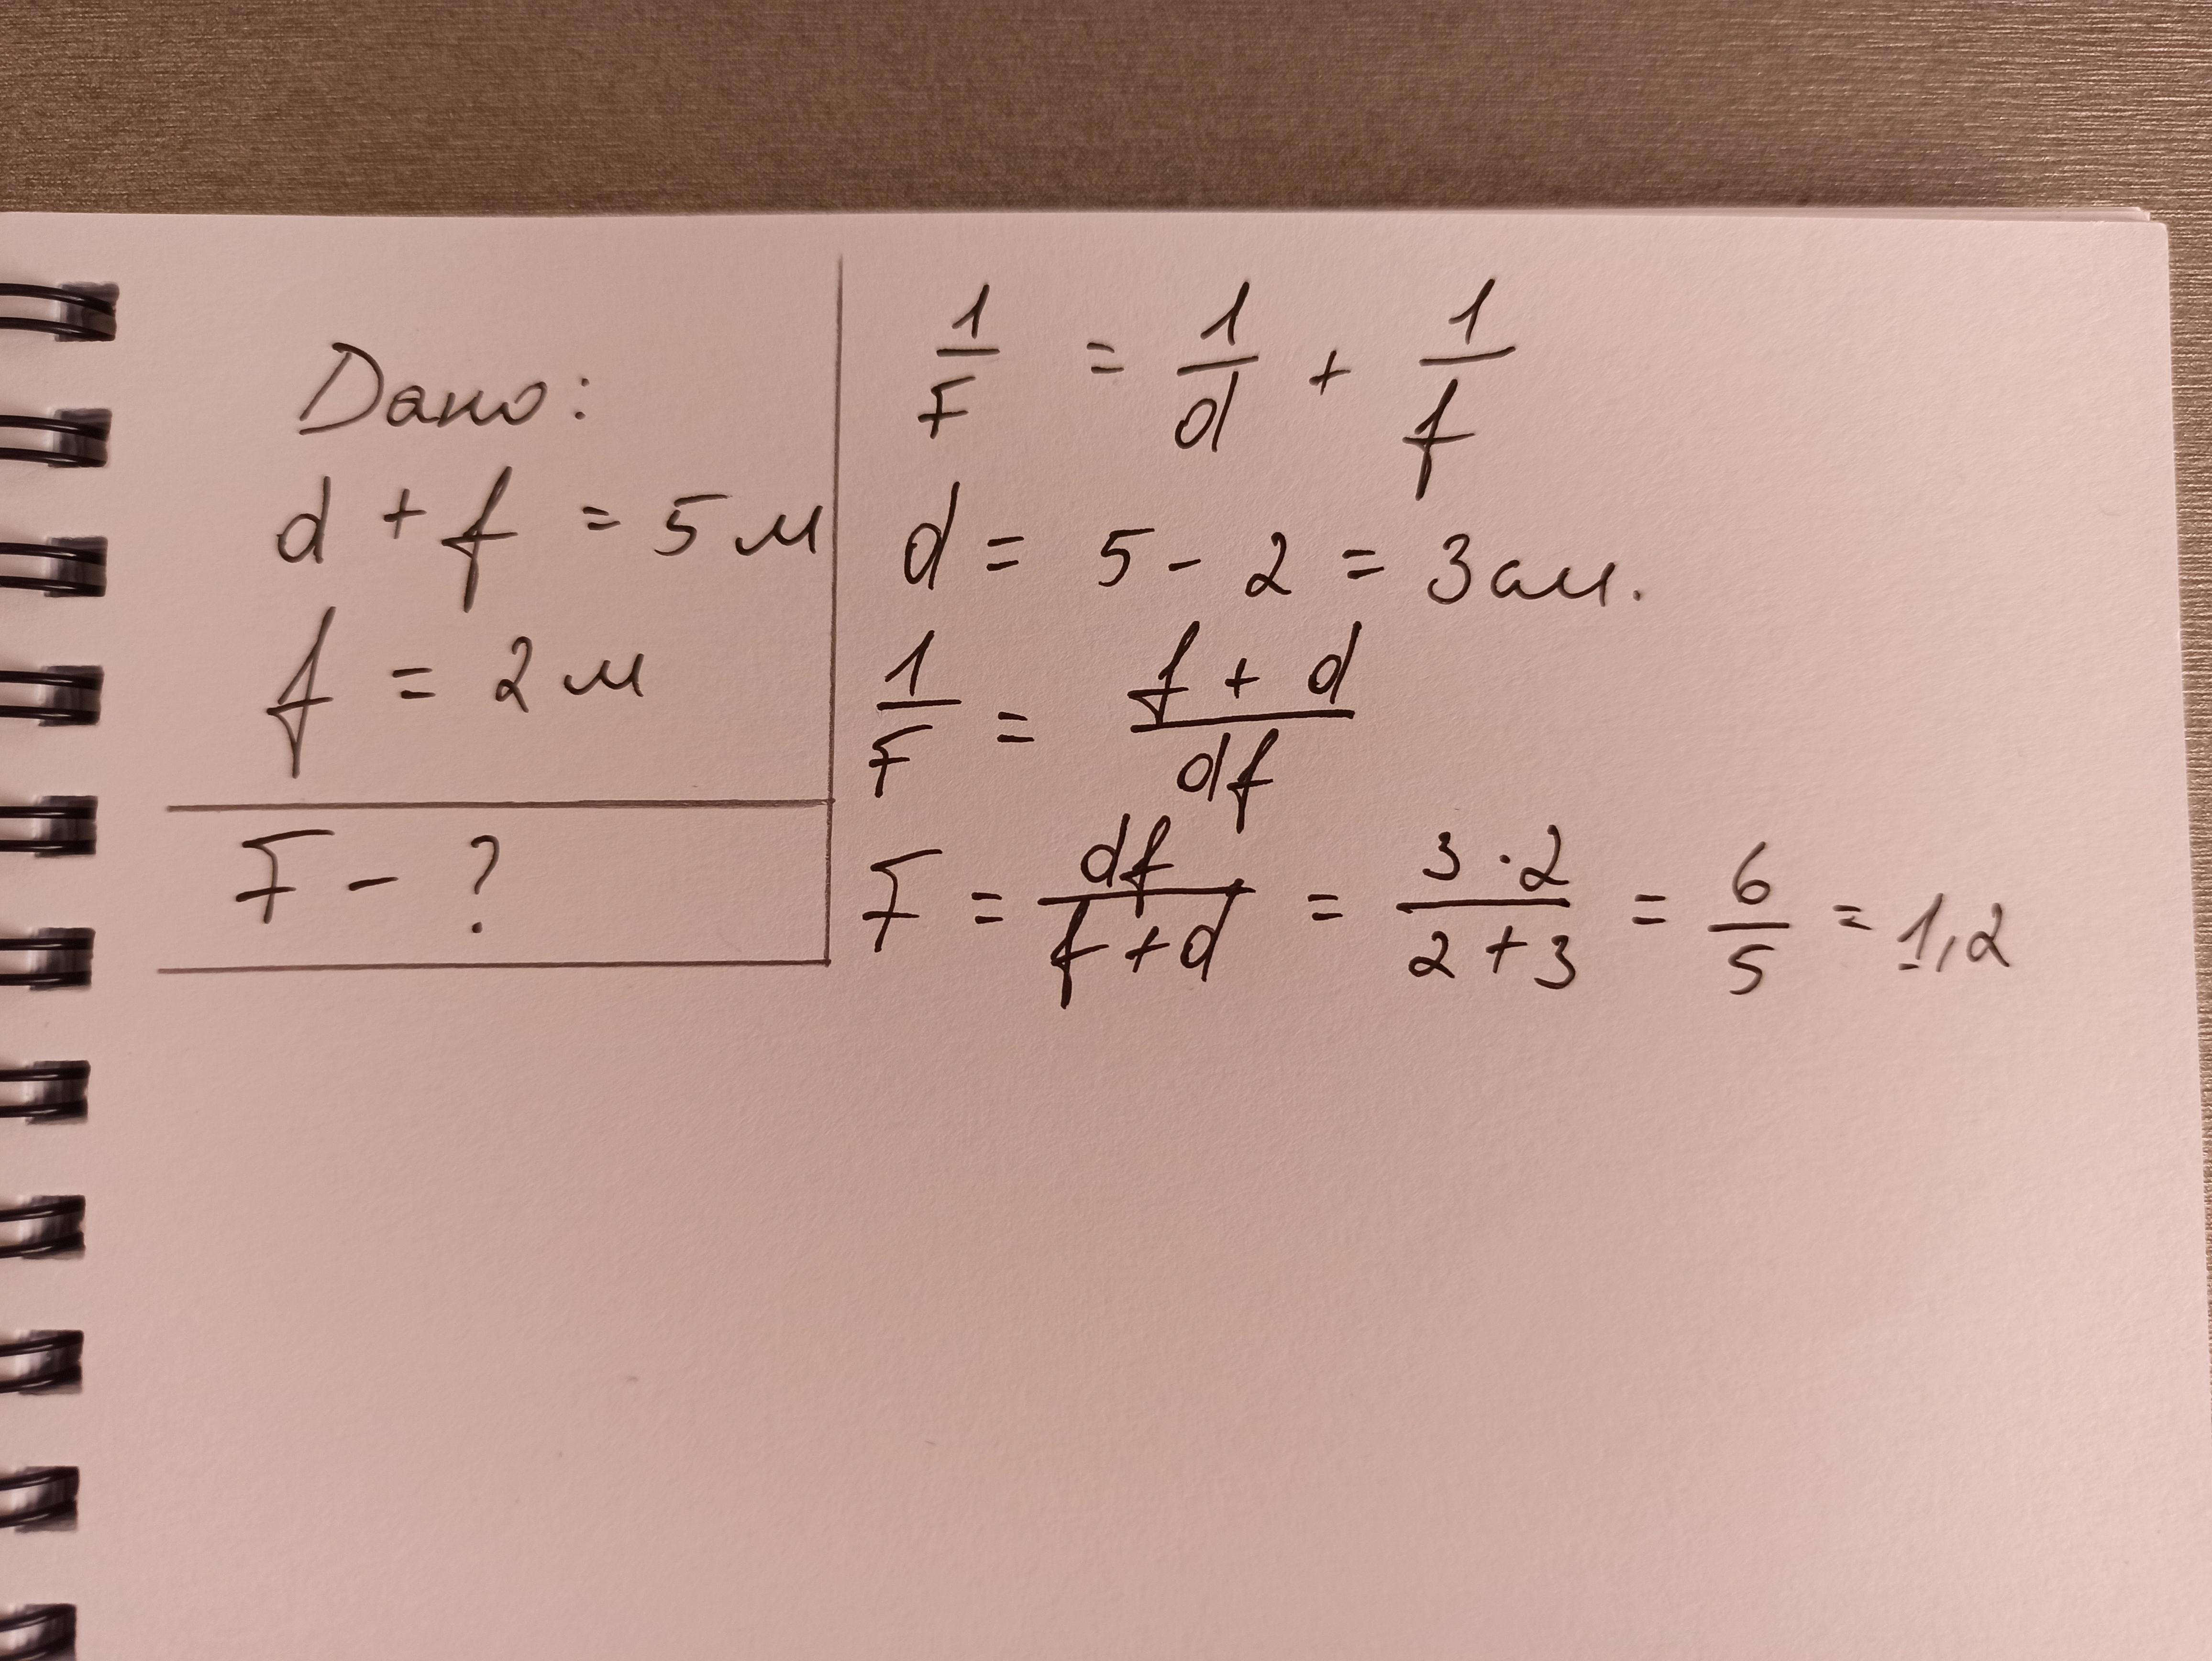 Дано:
d + f = 5 м
f = 2 м
F - ?
1/F = 1/d + 1/f
d = 5 - 2 = 3 см.
1/F = (f + d)/(df)
F = df/(f + d) = (3 · 2)/(2 + 3) = 6/5 = 1,2